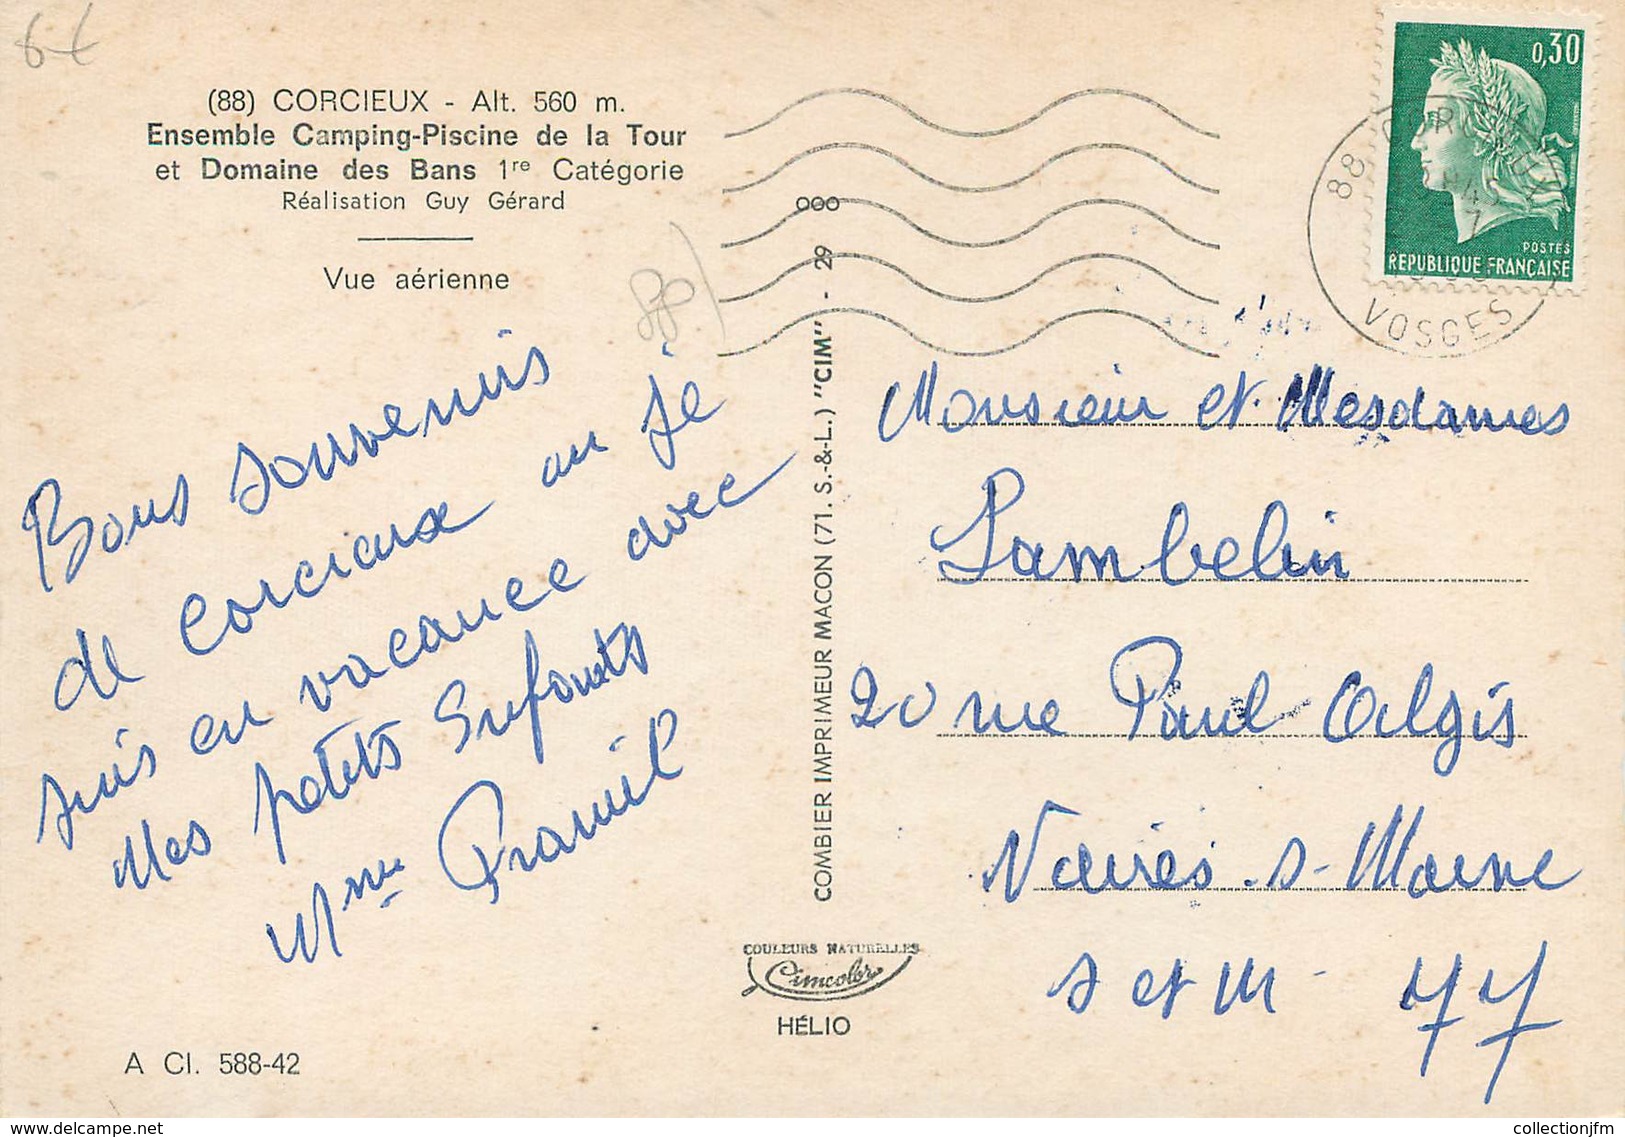 6€
(88) CORCIEUX - Alt. 560 m.
Ensemble Camping-Piscine de la Tour
et Domaine des Bans 1re Catégorie
Réalisation Guy Gérard
Vue aérienne
Bons souvenirs
de Corcieux ou je
suis en vacance avec
Mes petits Enfants
Mme
COMBIER IMPRIMEUR MACON (71. S.-&-L.) "CIM" - 29 000
COULEURS NATURELLES
Cimcolor
HÉLIO
A Cl. 588-42
0,30
POSTES
REPUBLIQUE FRANÇAISE
88 CORCIEUX
VOSGES
Monsieur et Mesdames
Lambelin
20 rue Paul Algis
Vaires-s-Marne
S et M - 77
delcampe.net
collectionjfm